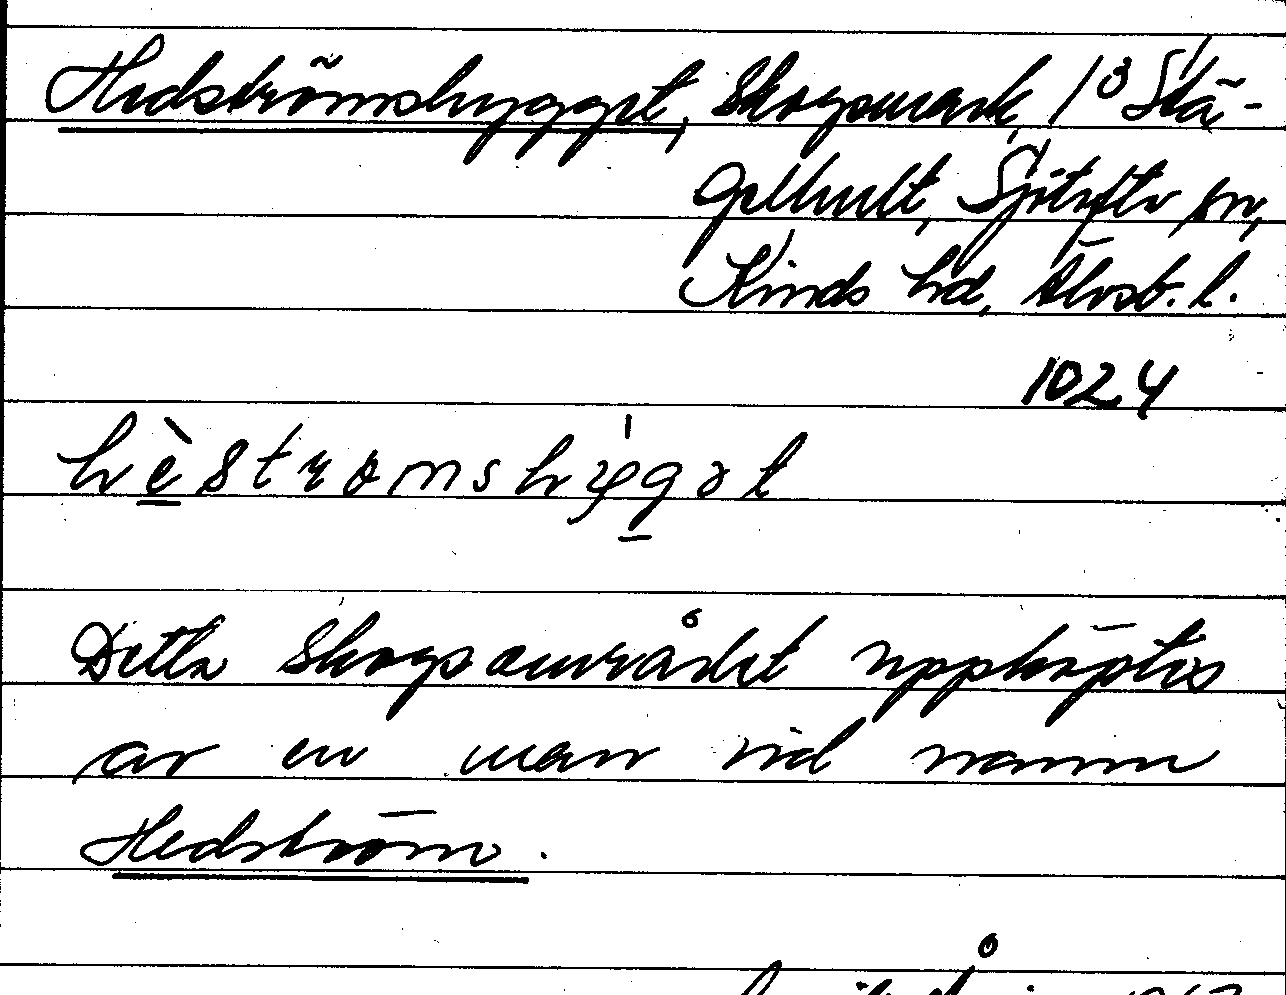 Hedströmshygget, Skogsmark, 1³ Stä-
gelhult, Sjötofta sn,
Kinds hd, Älvsb. l.
1024
hèstrømshyg̲ət
Detta skogsområdet upphögtes
av en man vid namn
Hedström.